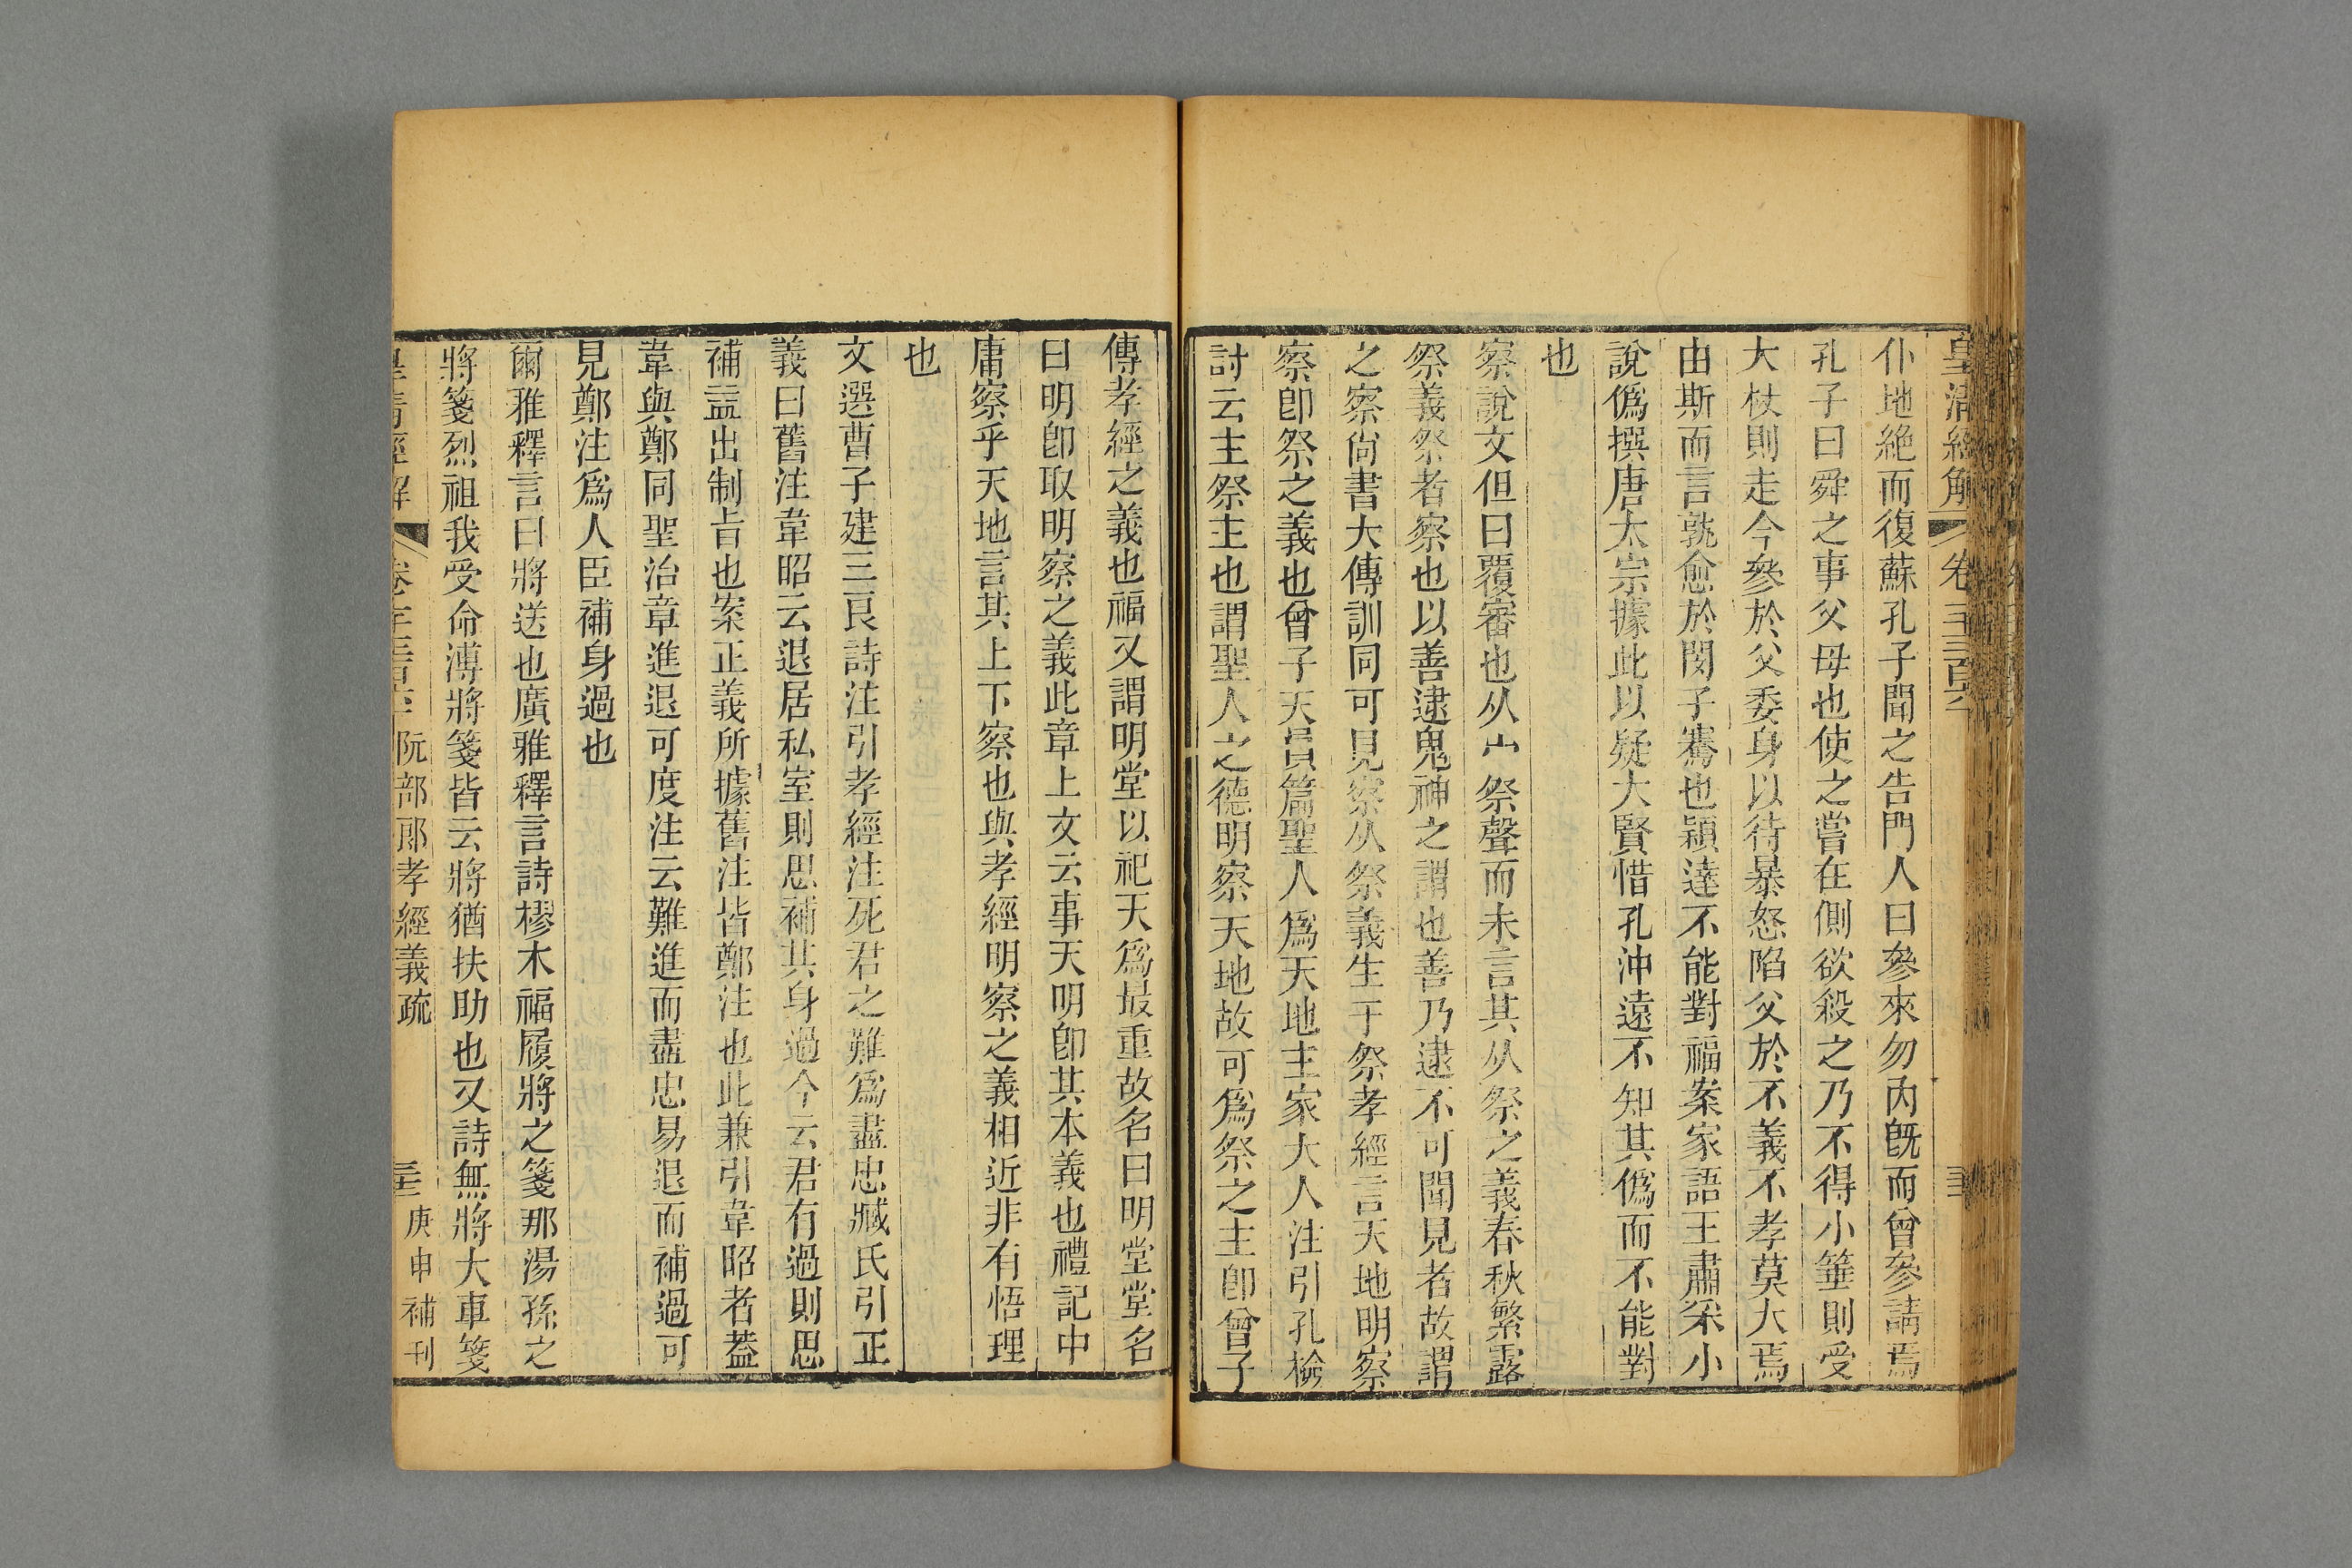 仆地絶而復蘇孔子聞之告門人曰參來勿內旣而曾參請焉
孔子曰舜之事父母也使之嘗在側欲殺之乃不得小箠則受
大杖則走今參於父委身以待暴怒陷父於不義不孝莫大焉
由斯而言孰愈於閔子騫也穎達不能對福案家語王肅采小
說僞撰唐太宗據此以疑大賢惜孔沖遠不知其僞而不能對
也
察說文但曰覆審也从宀祭聲而未言其从祭之義春秋繁露
祭義祭者察也以善逮鬼神之謂也善乃逮不可聞見者故謂
之察尙書大傳訓同可見察从祭義生于祭孝經言天地明察
察卽祭之義也曾子天員篇聖人爲天地主家大人注引孔檢
討云主祭主也謂聖人之德明察天地故可爲祭之主卽曾子
傳孝經之義也福又謂明堂以祀天爲最重故名曰明堂堂名
曰明卽取明察之義此章上文云事天明卽其本義也禮記中
庸察乎天地言其上下察也與孝經明察之義相近非有悟理
也
文選曹子建三良詩注引孝經注死君之難爲盡忠臧氏引正
義曰舊注韋昭云退居私室則思補其身過今云君有過則思
補益出制旨也案正義所據舊注皆鄭注也此兼引韋昭者葢
韋與鄭同聖治章進退可度注云難進而盡忠易退而補過可
見鄭注爲人臣補身過也
爾雅釋言曰將送也廣雅釋言詩樛木福履將之箋那湯孫之
將箋烈祖我受命溥將箋皆云將猶扶助也又詩無將大車箋
皇清經解 阮部郎孝經義疏 庚申補刊